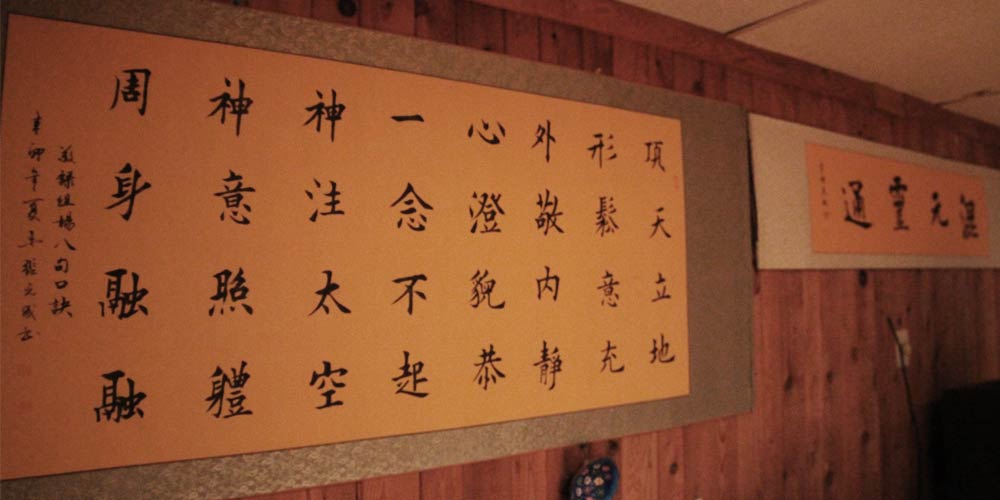 混元靈通
頂天立地
形鬆意充
外敬內靜
心澄貌恭
一念不起
神注太空
神意照體
周身融融
敬錄組場八句口訣
辛卯年夏